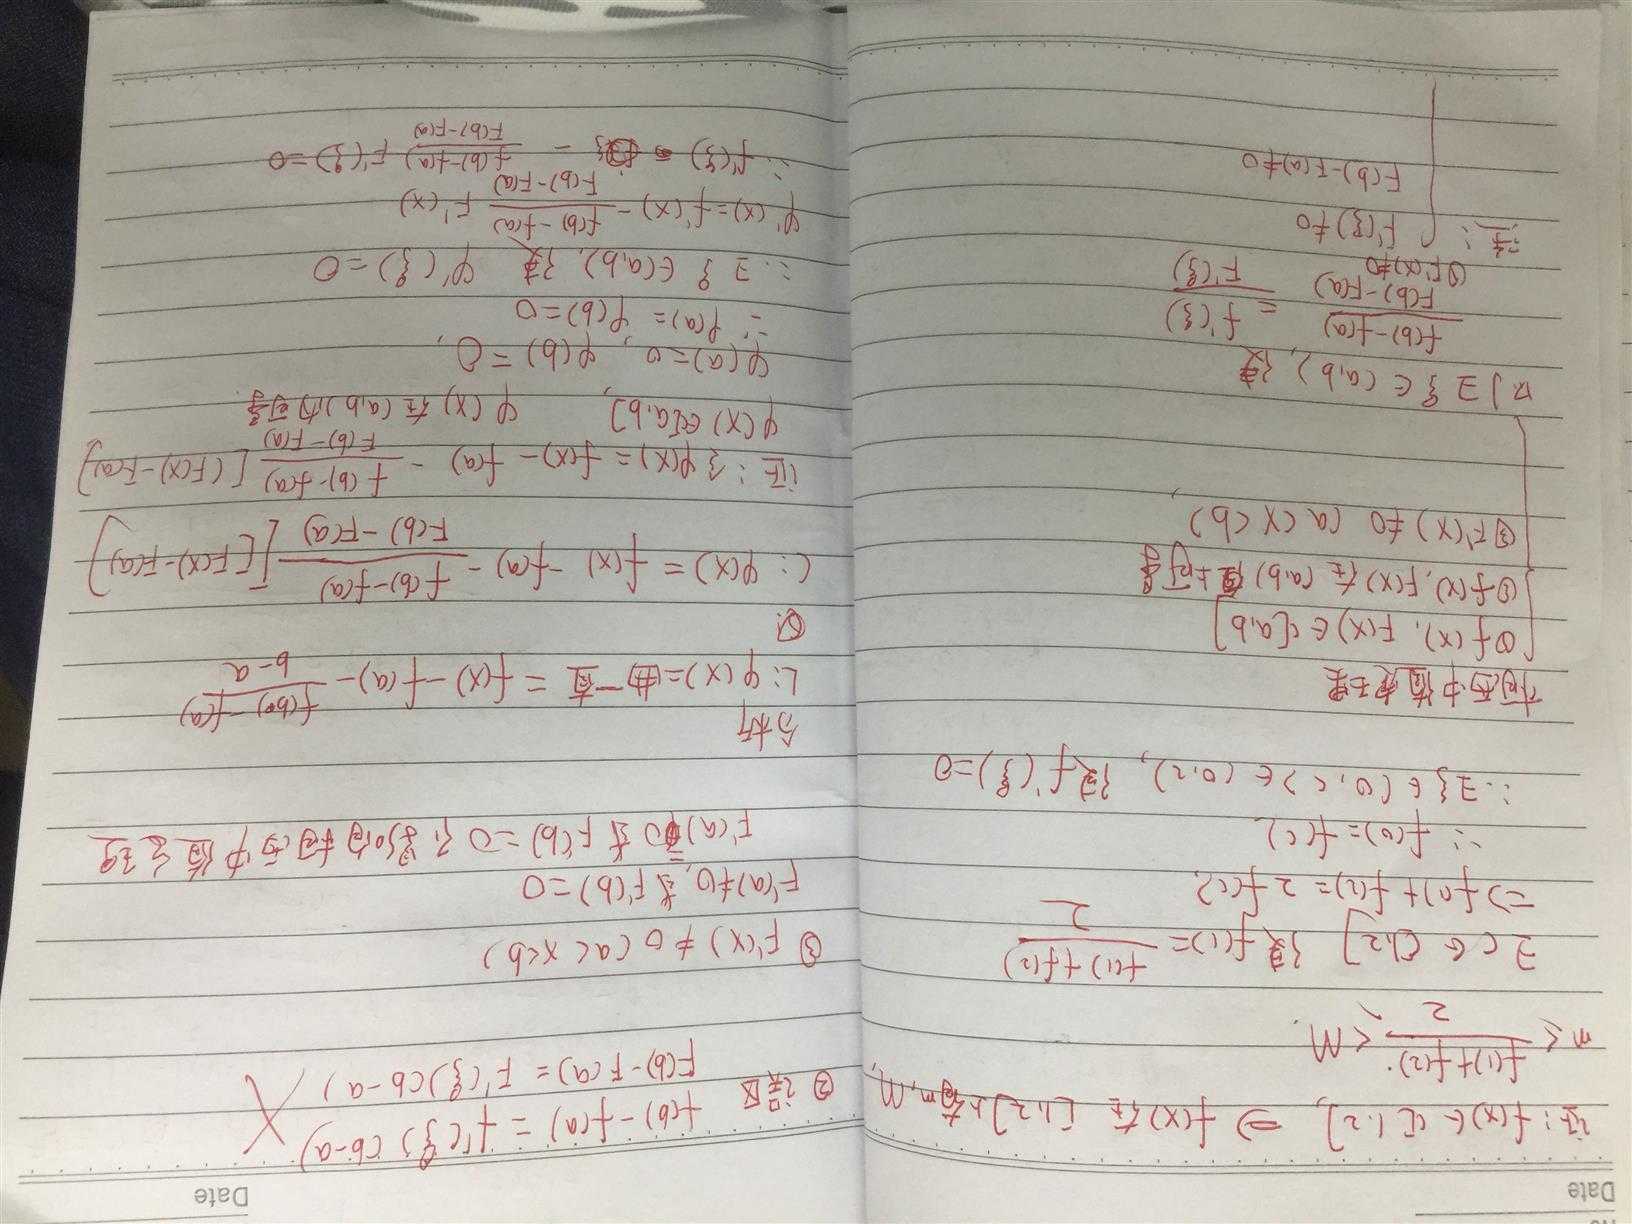 Date
证: f(x)∈C[1,2], ⇒ f(x)在[1,2]上有m,M,
m ≤ \frac{f(1)+f(2)}{2} ≤ M.
∃c∈[1,2] 使f(c)=\frac{f(1)+f(2)}{2}
⇒ f(1)+f(2)=2f(c),
∵ f(0)=f(c)
∴ ∃ξ∈(0,c)∈(0,2), 使f'(ξ)=0
柯西中值定理
① f(x), F(x)∈C[a,b]
② f(x), F(x)在(a,b)上可导
③ F'(x)≠0 (a<x<b),
则∃ξ∈(a,b), 使
\frac{f(b)-f(a)}{F(b)-F(a)} = \frac{f'(ξ)}{F'(ξ)}
① F'(x)≠0
注: F'(ξ)≠0
F(b)-F(a)≠0
Date
② 误区 f(b)-f(a)=f'(ξ)(b-a)
F(b)-F(a)=F'(ξ)(b-a)
③ F'(x)≠0 (a<x<b)
F'(a)≠0, 若F'(b)=0
F'(a)=0 或 F'(b)=0 不影响柯西中值定理
分析
L: φ(x)=曲-直=f(x)-f(a)-\frac{f(b)-f(a)}{b-a}
C: φ(x)=f(x)-f(a)-\frac{f(b)-f(a)}{F(b)-F(a)}[F(x)-F(a)]
证: 令φ(x)=f(x)-f(a)-\frac{f(b)-f(a)}{F(b)-F(a)}[F(x)-F(a)]
φ(x)∈C[a,b], φ(x)在(a,b)内可导.
φ(a)=0, φ(b)=0,
∵ φ(a)=φ(b)=0
∴ ∃ξ∈(a,b), 使 φ'(ξ)=0
φ'(x)=f'(x)-\frac{f(b)-f(a)}{F(b)-F(a)}F'(x)
∴ f'(ξ)-\frac{f(b)-f(a)}{F(b)-F(a)}F'(ξ)=0